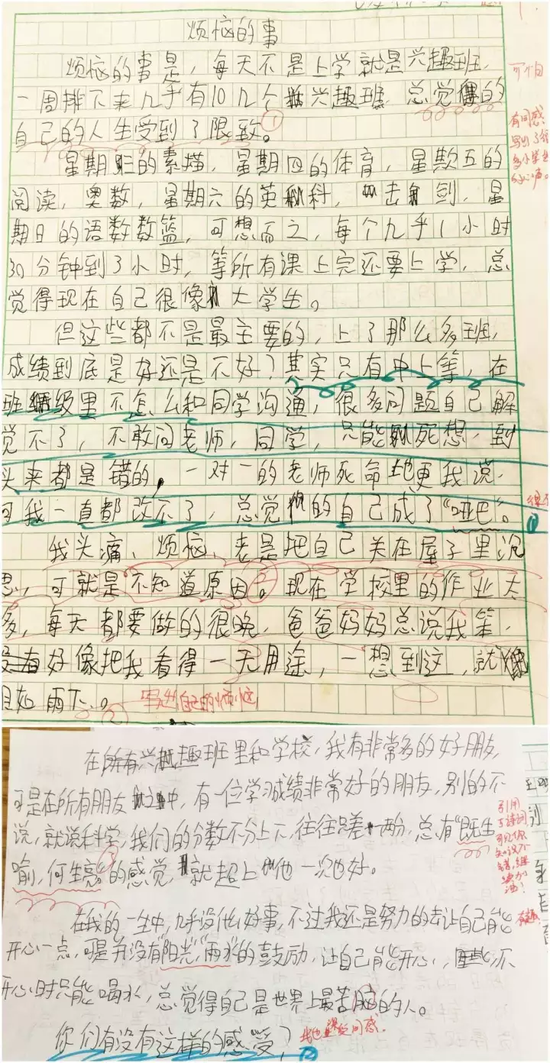 烦恼的事
烦恼的事是，每天不是上学就是兴趣班，
一周排下来几乎有10几个兴趣班，总觉得的
自己的人生受到了限致。
星期三的素描，星期四的体育，星期五的
阅读，奥数，星期六的英科，击剑，星
期日的语数数篮，可想而之，每个几乎1小时
30分钟到3小时，等所有课上完还要上学，总
觉得现在自己很像大学生。
但这些都不是最主要的，上了那么多班，
成绩到底是好还是不好？其实只有中上等，在
班级里不怎么和同学沟通，很多问题自己解
觉不了，不敢问老师，同学，只能死想，到
头来都是错的，一对一的老师死命地更我说，
可我一直都改不了，总觉的自己成了“哑巴”。
我头痛、烦恼，老是把自己关在屋子里沉
思，可就是不知道原因。现在学校里的作业太
多，每天都要做的很晚，爸爸妈妈总说我笨，
好像把我看得一无用途，一想到这，就
目如雨下。
写出自己的烦恼
在所有兴趣班里和学校，我有非常多的好朋友，
可是在所有朋友之中，有一位学习成绩非常好的朋友，别的不
说，就说科学，我们的分数不分上下，往往只差一两分，总有“既生
喻，何生亮”的感觉，就超上他一次也好。
在我的一生中，几乎没什么好事，不过我还是努力的去让自己能
开心一点，可是并没有“阳光”“雨水”的鼓励，让自己能开心，
开心时只能喝水，总觉得自己是世界上最苦恼的人。
你们有没有这样的感受？